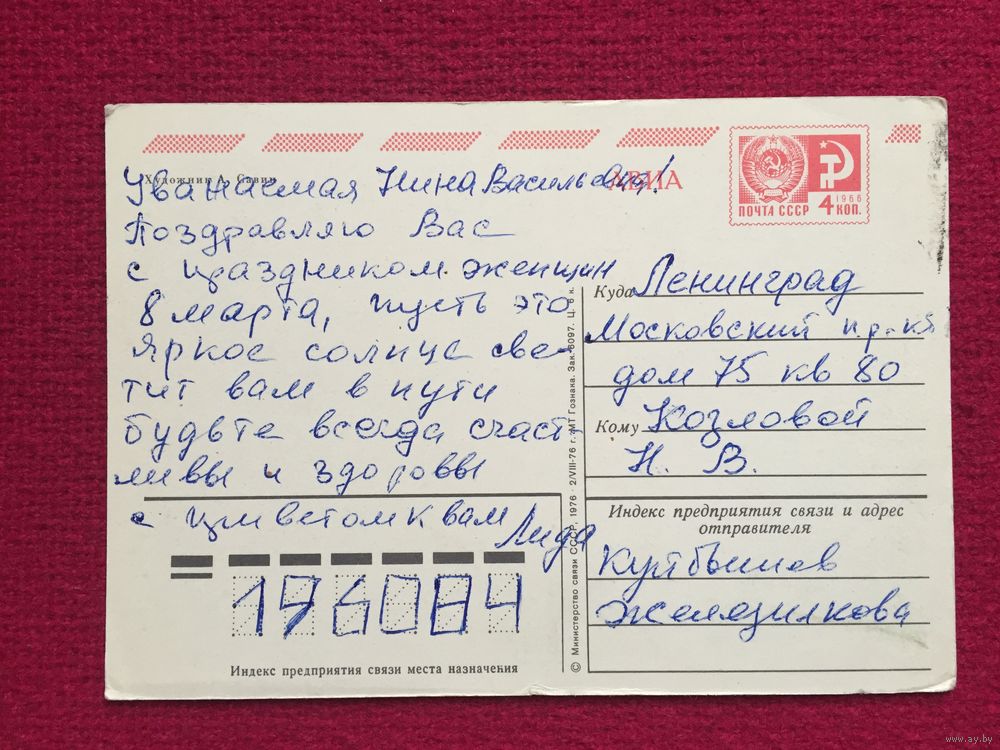 Художник А. Савин
АВИА
ПОЧТА СССР
1966
4 КОП.
Уважаемая Нина Васильевна!
Поздравляю Вас
с праздником женщин
8 марта, пусть это
яркое солнце све-
тит вам в пути
будьте всегда счаст-
ливы и здоровы
с приветом к вам
Лида
Куда Ленинград
Московский пр-кт
дом 75 кв 80
Кому Козловой
Н. В.
Индекс предприятия связи и адрес
отправителя
Куйбышев
196084
Индекс предприятия связи места назначения
© Министерство связи СССР, 1976 · 2/VIII-76 г. МТ Гознака. Зак. 6097. Ц. 6 к.
www.ay.by